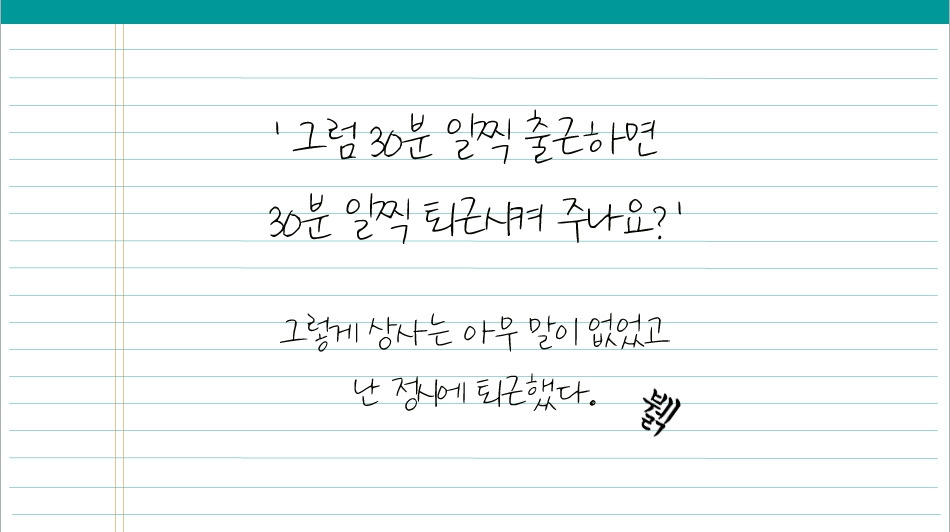 '그럼 30분 일찍 출근하면
30분 일찍 퇴근시켜 주나요?'
그렇게 상사는 아무 말이 없었고
난 정시에 퇴근했다.